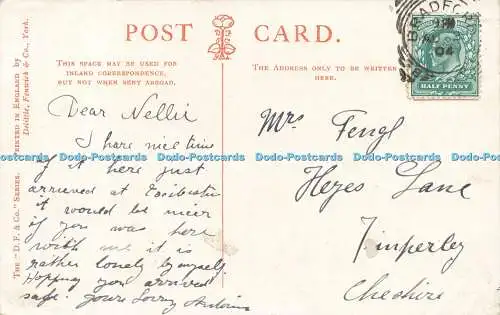 POST CARD.
THIS SPACE MAY BE USED FOR
INLAND CORRESPONDENCE,
BUT NOT WHEN SENT ABROAD.
THE ADDRESS ONLY TO BE WRITTEN
HERE.
THE "D. F. & Co." SERIES.
PRINTED IN ENGLAND by
Delittle, Fenwick & Co., York.
BRADFORD
04
HALF PENNY
Dear Nellie
I have nice time
of it here just
arrived at
it would be nicer
if you was here
with me it is
rather lonely by myself.
Hopping you arrived
safe. yours
Mrs Fengl
Heyes Lane
Timperley
Cheshire
Dodo-Postcards Dodo-Postcards Dodo-Postcards Dodo-Postcards Dodo-Postcards